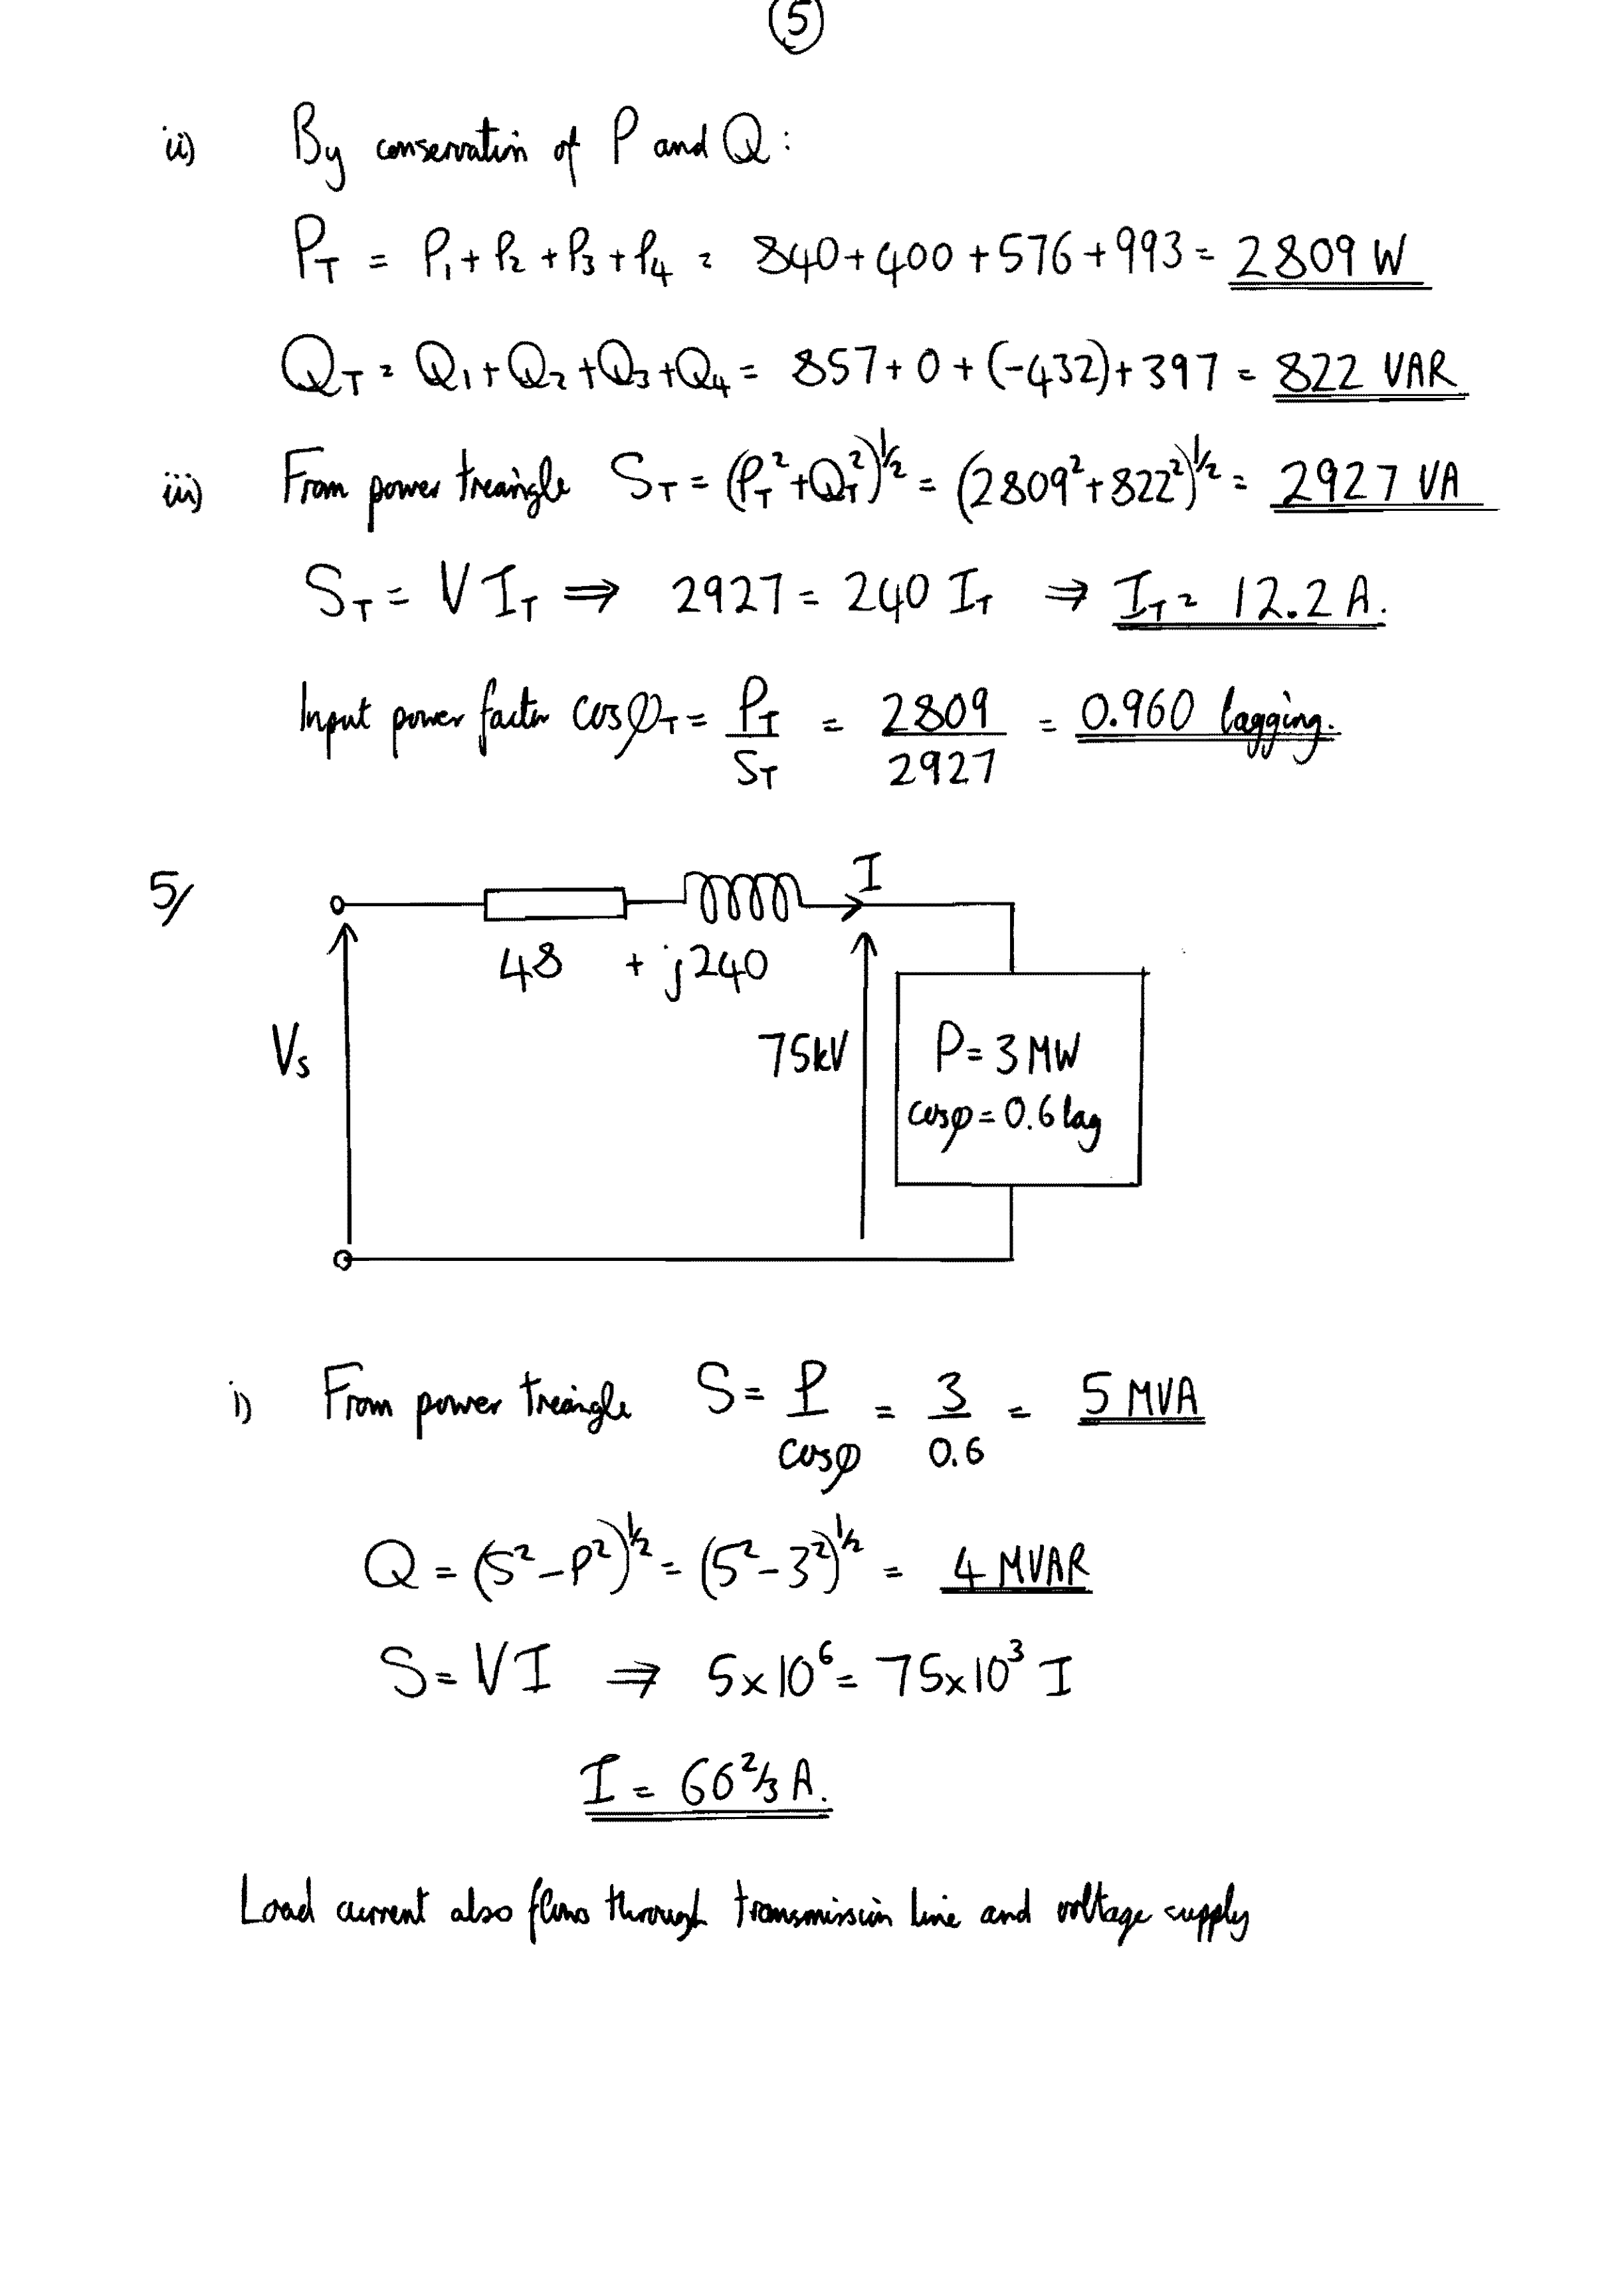 5
ii) By conservation of P and Q:
P_T = P_1 + P_2 + P_3 + P_4 = 840 + 400 + 576 + 993 = 2809 W
Q_T = Q_1 + Q_2 + Q_3 + Q_4 = 857 + 0 + (-432) + 397 = 822 VAR
iii) From power treangle S_T = (P_T^2 + Q_T^2)^1/2 = (2809^2 + 822^2)^1/2 = 2927 VA
S_T = V I_T ⇒ 2927 = 240 I_T ⇒ I_T = 12.2 A.
Input power factor cosφ_T = P_T/S_T = 2809/2927 = 0.960 lagging.
5/
I
48 + j240
V_s
75kV
P = 3 MW
cosφ = 0.6 lag
i) From power treangle S = P/cosφ = 3/0.6 = 5 MVA
Q = (S^2 - P^2)^1/2 = (5^2 - 3^2)^1/2 = 4 MVAR
S = VI ⇒ 5x10^6 = 75x10^3 I
I = 66 2/3 A.
Load current also flows through transmission line and voltage supply